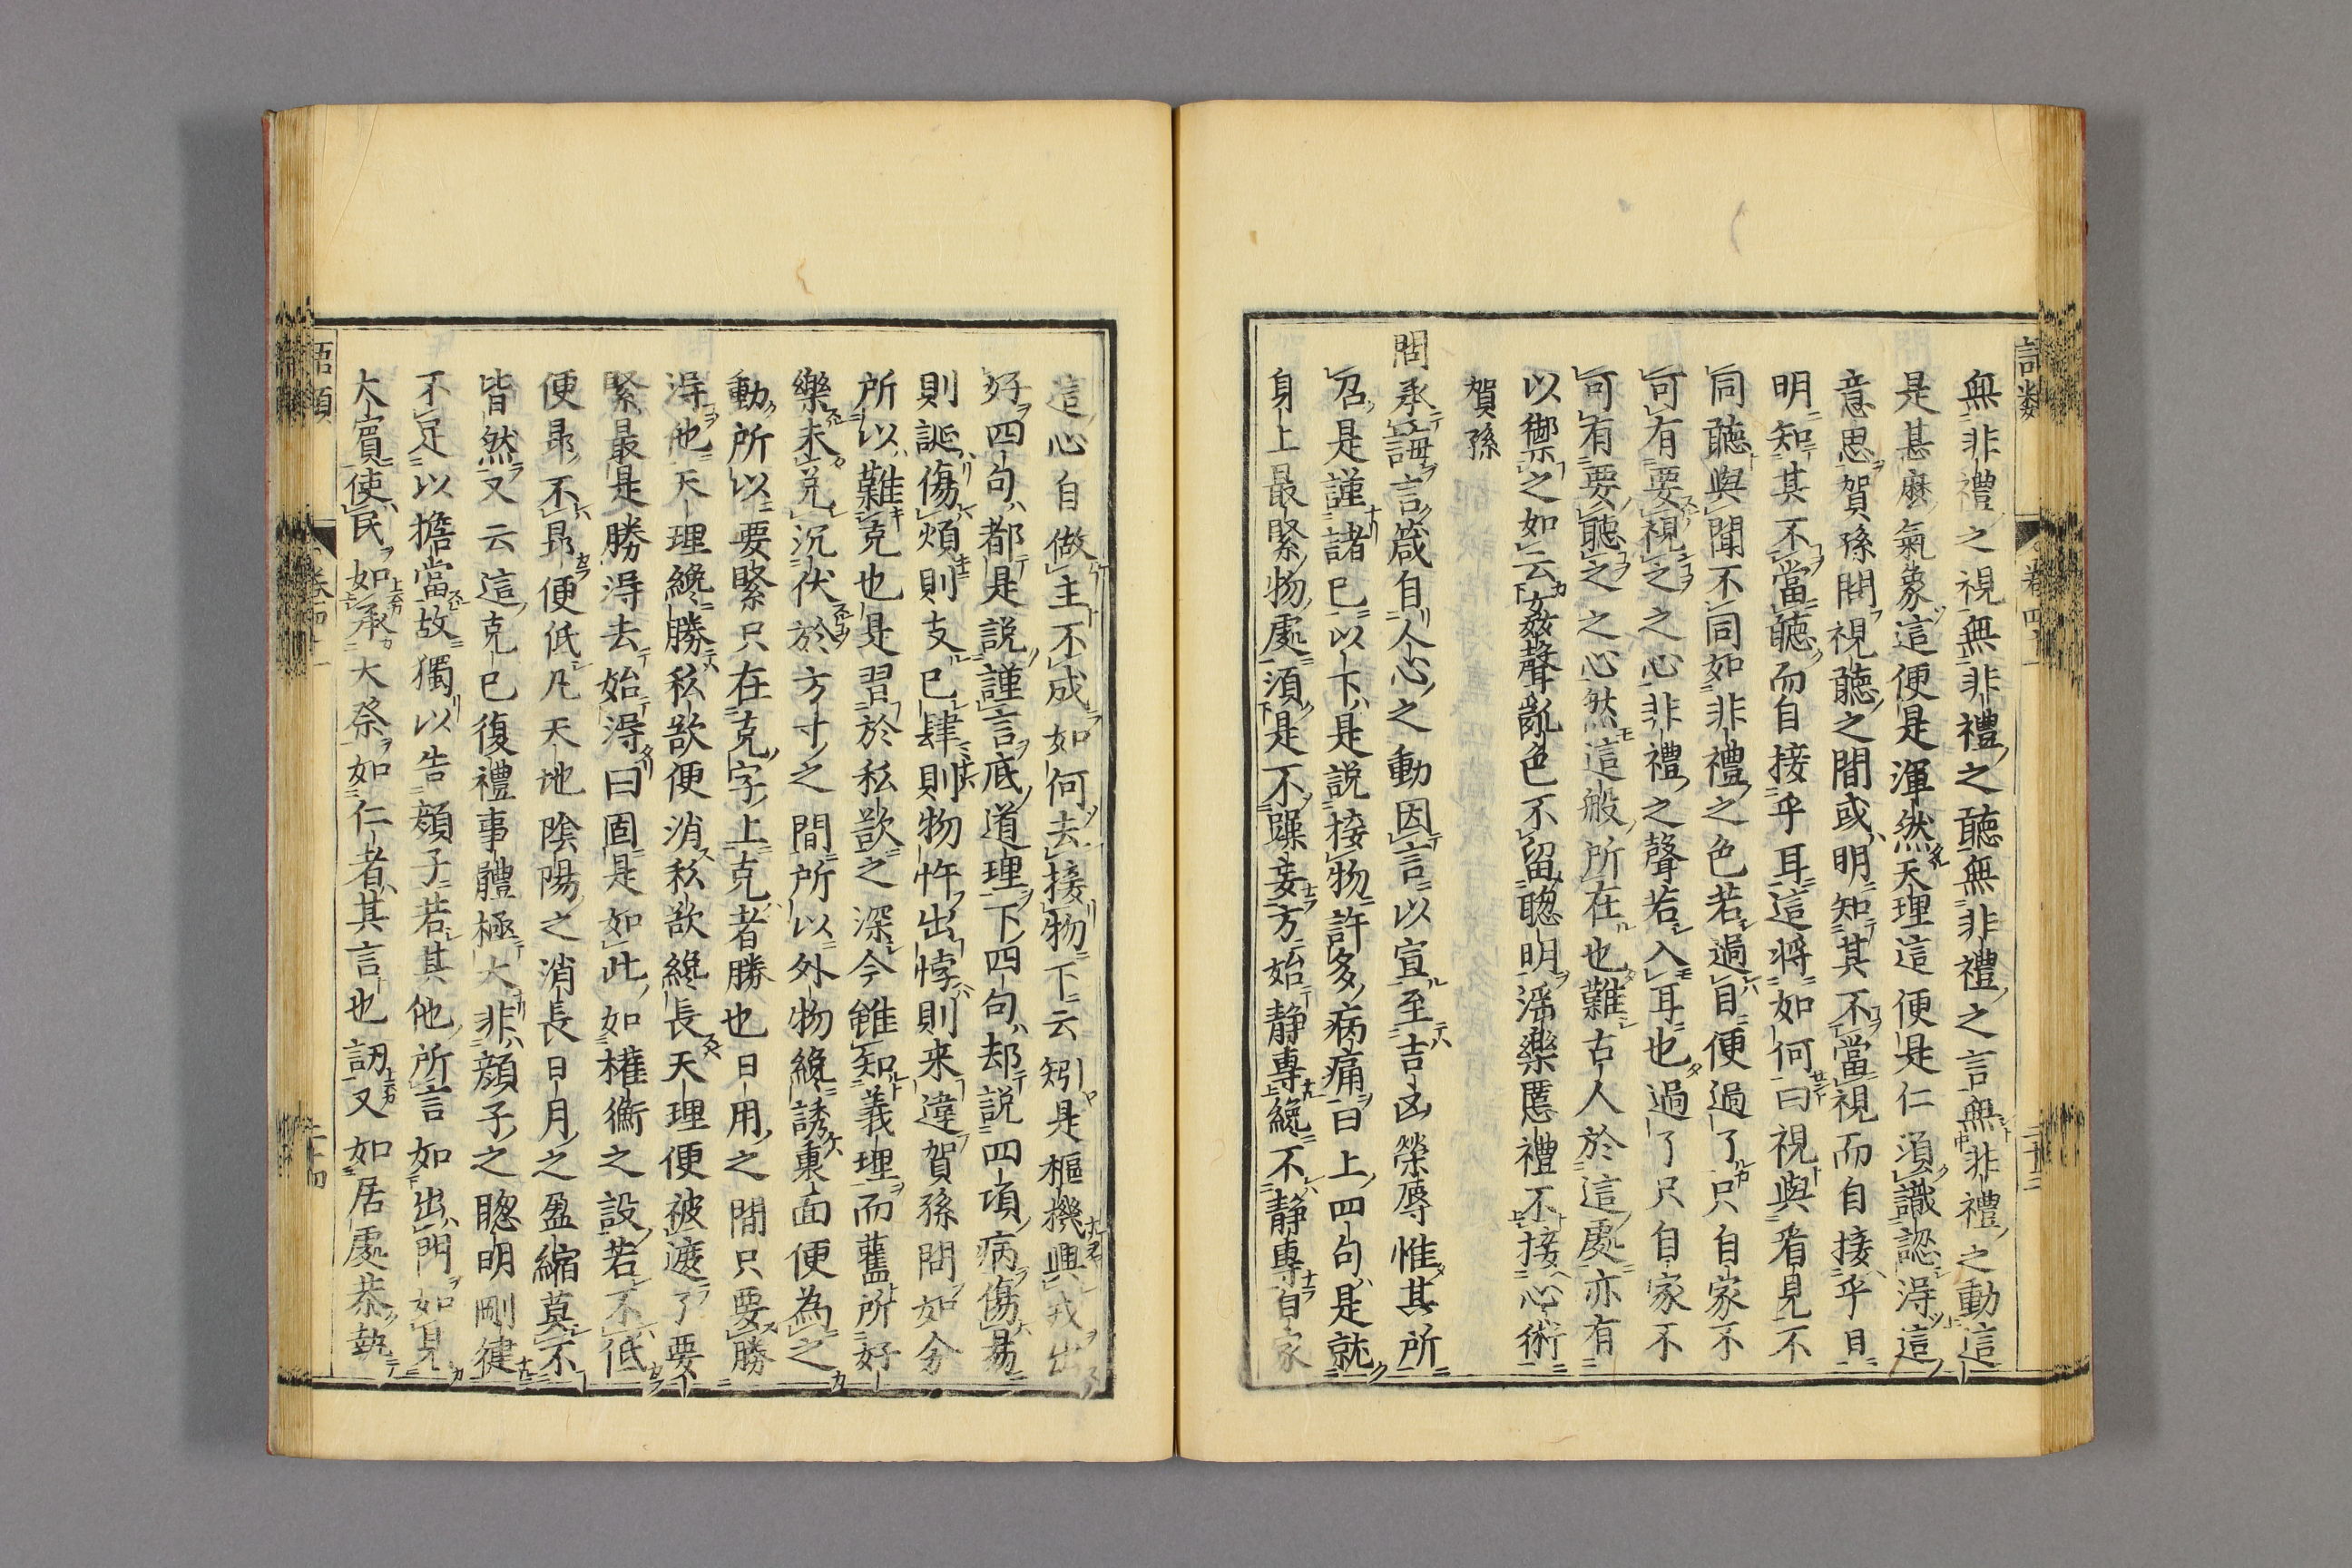 語類
卷四十一
二十三
無非禮之視無非禮之聽無非禮之言無非禮之動這
是甚麼氣象這便是渾然天理這便是仁須識認得這
意思賀孫問視聽之間或明知其不當視而自接乎目
明知其不當聽而自接乎耳這將如何曰視與看見不
同聽與聞不同如非禮之色若過目便過了只自家不
可有要視之之心非禮之聲若入耳也過了只自家不
可有要聽之之心然這般所在也難古人於這處亦有
以禦之如云姦聲亂色不留聰明淫樂慝禮不接心術
賀孫
問承誨言箴自人心之動因言以宣至吉凶榮辱惟其所
召是謹諸已以下是說接物許多病痛曰上四句是就
身上最緊物處須是不躁妄方始静專纔不静專自家
這心自做主不成如何去接物下云矧是樞機興戎出
好四句都是說謹言底道理下四句却說四項病傷易
則誕傷煩則支已肆則物忤出悖則来違賀孫問如今
所以難克也是習於私欲之深今雖知義理而舊所好
樂未免沉伏於方寸之間所以外物纔誘裏面便為之
動所以要緊只在克字上克者勝也日用之間只要勝
得他天理纔勝私欲便消私欲纔長天理便被遮了要
緊最是勝得去始得曰固是如此如權衡之設若不低
便昻不昻便低凡天地陰陽之消長日月之盈縮莫不
皆然又云這克已復禮事體極大非顏子之聰明剛健
不足以擔當故獨以告顏子若其他所言如出門如見
大賓使民如承大祭如仁者其言也訒又如居處恭執
語類
卷四十一
二十四